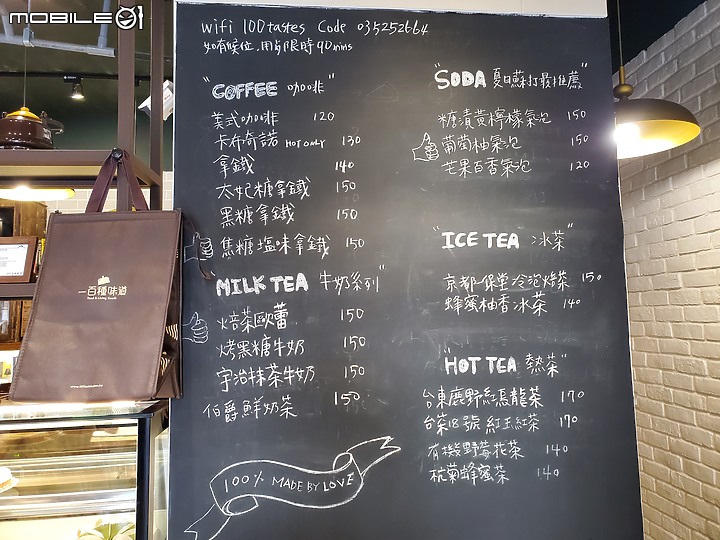 MOBILE01
wifi 100tastes Code 035252664
如有候位，用餐限時90mins
"COFFEE 咖啡"
美式咖啡 120
卡布奇諾 HOT ONLY 130
拿鐵 140
太妃糖拿鐵 150
黑糖拿鐵 150
焦糖塩味拿鐵 150
"MILK TEA 牛奶系列"
焙茶歐蕾 150
烤黑糖牛奶 150
宇治抹茶牛奶 150
伯爵鮮奶茶 150
100% MADE BY LOVE
"SODA 夏日蘇打最推薦"
糖漬黃檸檬氣泡 150
葡萄柚氣泡 150
芒果百香氣泡 120
"ICE TEA 冰茶"
京都一保堂冷泡焙茶 150
蜂蜜柚香冰茶 140
"HOT TEA 熱茶"
台東鹿野紅烏龍茶 170
台茶18號 紅玉紅茶 170
有機野莓花茶 140
杭菊蜂蜜茶 140
一百種味道